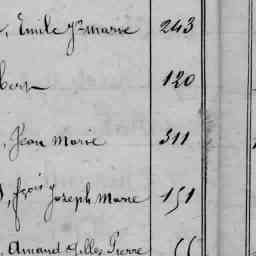 , Emile Jn marie 243
bert 120
, Jean Marie 311
, frçois Joseph Marie 151
, Amand Gilles Pierre 66